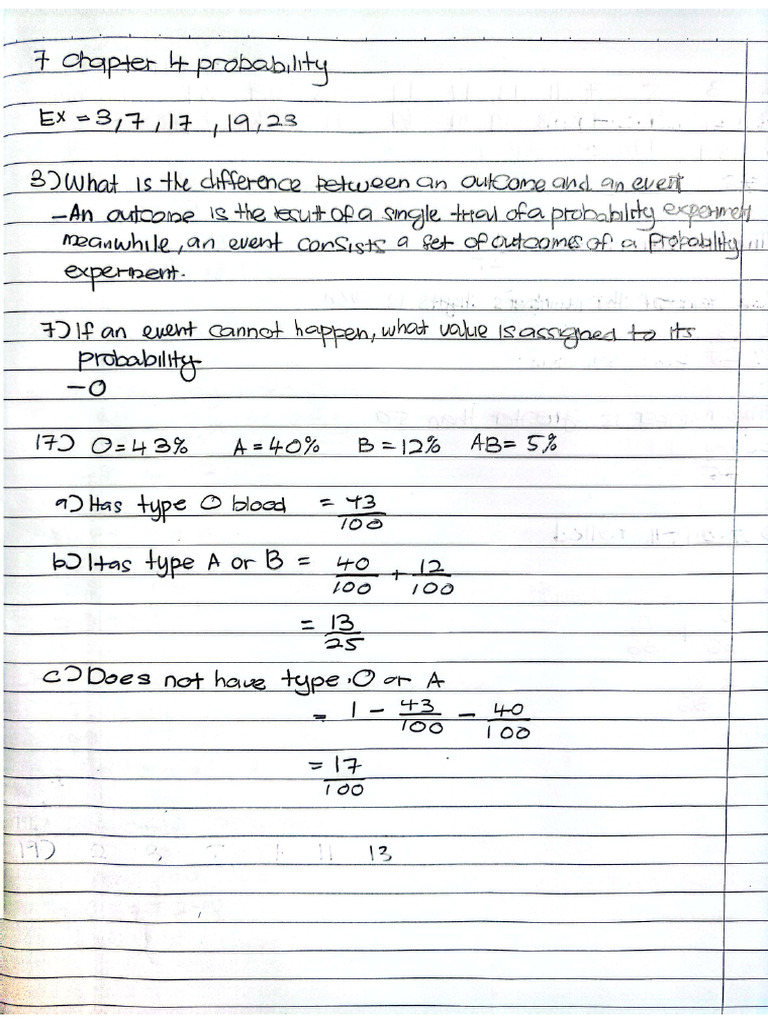 7 Chapter 4 probability
Ex = 3, 7, 17, 19, 23
3) What is the difference between an outcome and an event
- An outcome is the result of a single trial of a probability experiment
meanwhile, an event consists a set of outcomes of a probability
experiment.
7) If an event cannot happen, what value is assigned to its
probability
- 0
17) O = 43% A = 40% B = 12% AB = 5%
a) Has type O blood = 43/100
b) Has type A or B = 40/100 + 12/100
= 13/25
c) Does not have type O or A
= 1 - 43/100 - 40/100
= 17/100
19) 13